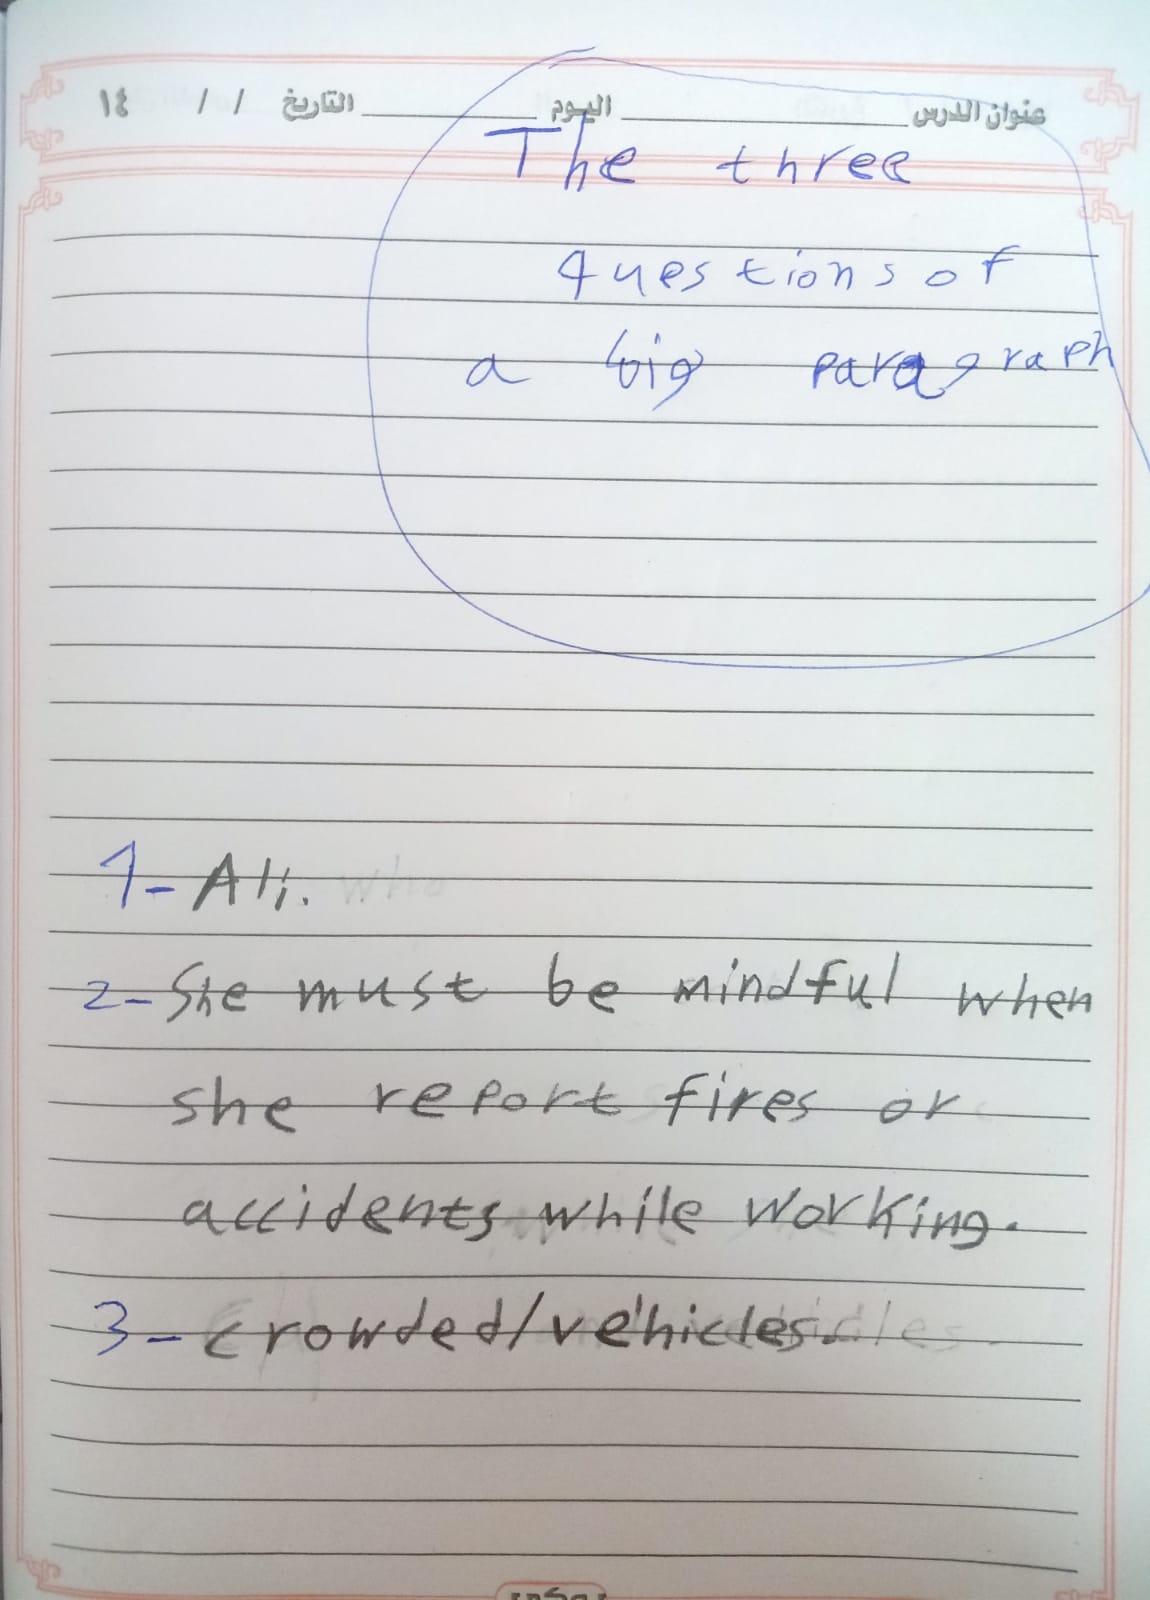 عنوان الدرس اليوم التاريخ / / ١٤
The three
questions of
a big paragraph
1- Ali. who
2- She must be mindful when
she report fires or
accidents while working.
3- crowded/vehicles.